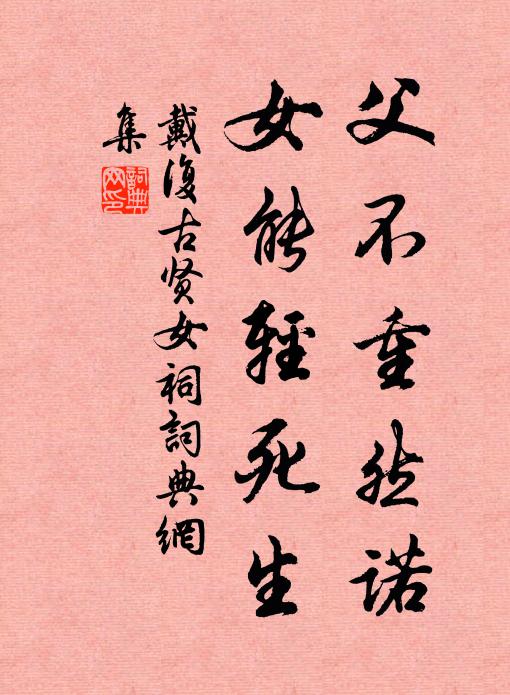 父不重然诺
女能輕死生
戴復古贤女祠詞典網
集
詞典網印